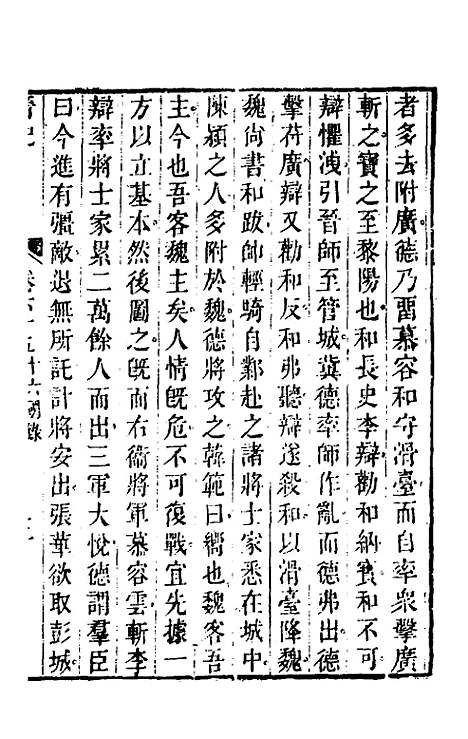 者多去附廣德乃畱慕容和守滑臺而自率衆擊廣
斬之寶之至黎陽也和長史李辯勸和納寶和不可
辯懼洩引晉師至管城冀德率師作亂而德弗出德
擊苻廣辯又勸和反和弗聽辯遂殺和以滑臺降魏
魏尚書和跋帥輕騎自鄴赴之諸將士家悉在城中
陳潁之人多附於魏德將攻之韓範曰嚮也魏客吾
主今也吾客魏主矣人情旣危不可復戰宜先據一
方以立基本然後圖之旣而右衞將軍慕容雲斬李
辯率將士家累二萬餘人而出三軍大悅德謂羣臣
曰今進有彊敵退無所託計將安出張華欲取彭城
晉記
卷六十五